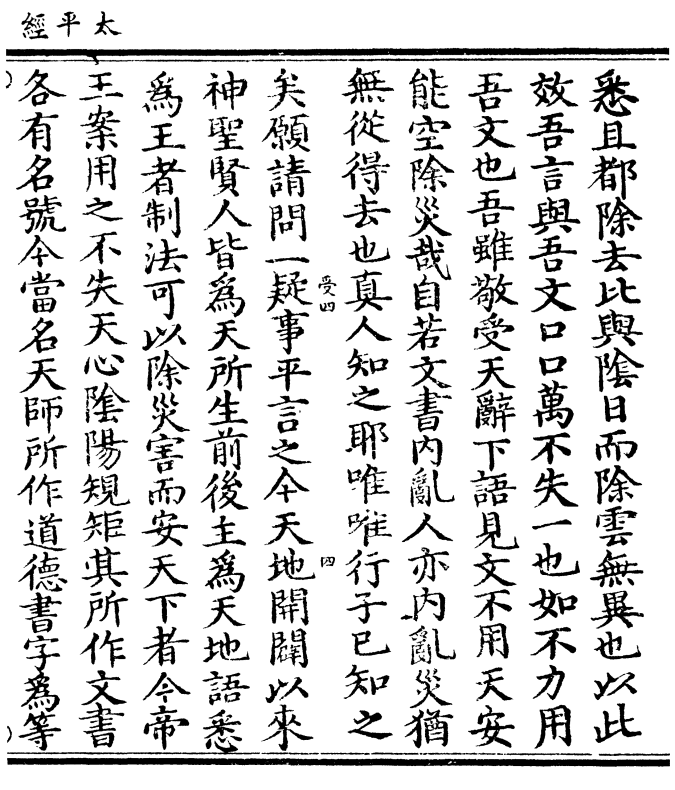 太平經
悉且都除去比與陰日而除雲無異也以此
效吾言與吾文口口萬不失一也如不力用
吾文也吾雖敬受天辭下語見文不用天安
能空除災哉自若文書內亂人亦內亂災猶
無從得去也真人知之耶唯唯行子已知之
矣願請問一疑事平言之今天地開闢以來
受四
四
神聖賢人皆為天所生前後主為天地語悉
為王者制法可以除災害而安天下者今帝
王案用之不失天心陰陽規矩其所作文書
各有名號今當名天師所作道德書字為等